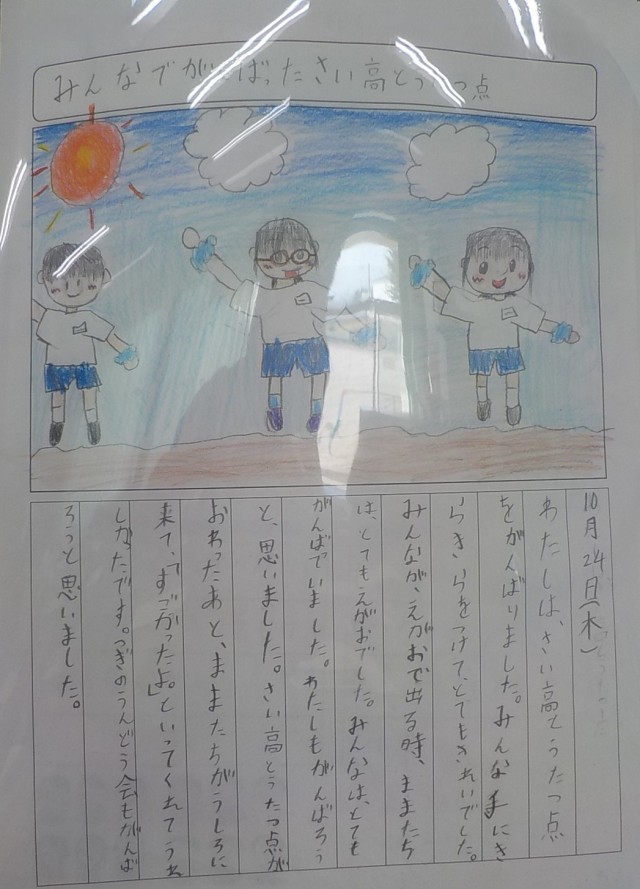 みんなでがんばったさい高とうたつ点
10月24日(木)
わたしは、さい高とうたつ点
をがんばりました。みんな手にき
らきらをつけて、とてもきれいでした。
みんなが、えがおで出る時、ままたち
は、とてもえがおでした。みんなは、とても
がんばでいました。わたしもがんばろう
と、思いました。さい高とうたつ点が
おわったあと、ままたちがうしろに
来て、「すごかったよ。」といってくれてうれ
しかったです。つぎのうんどう会もがんば
ろうと思いました。